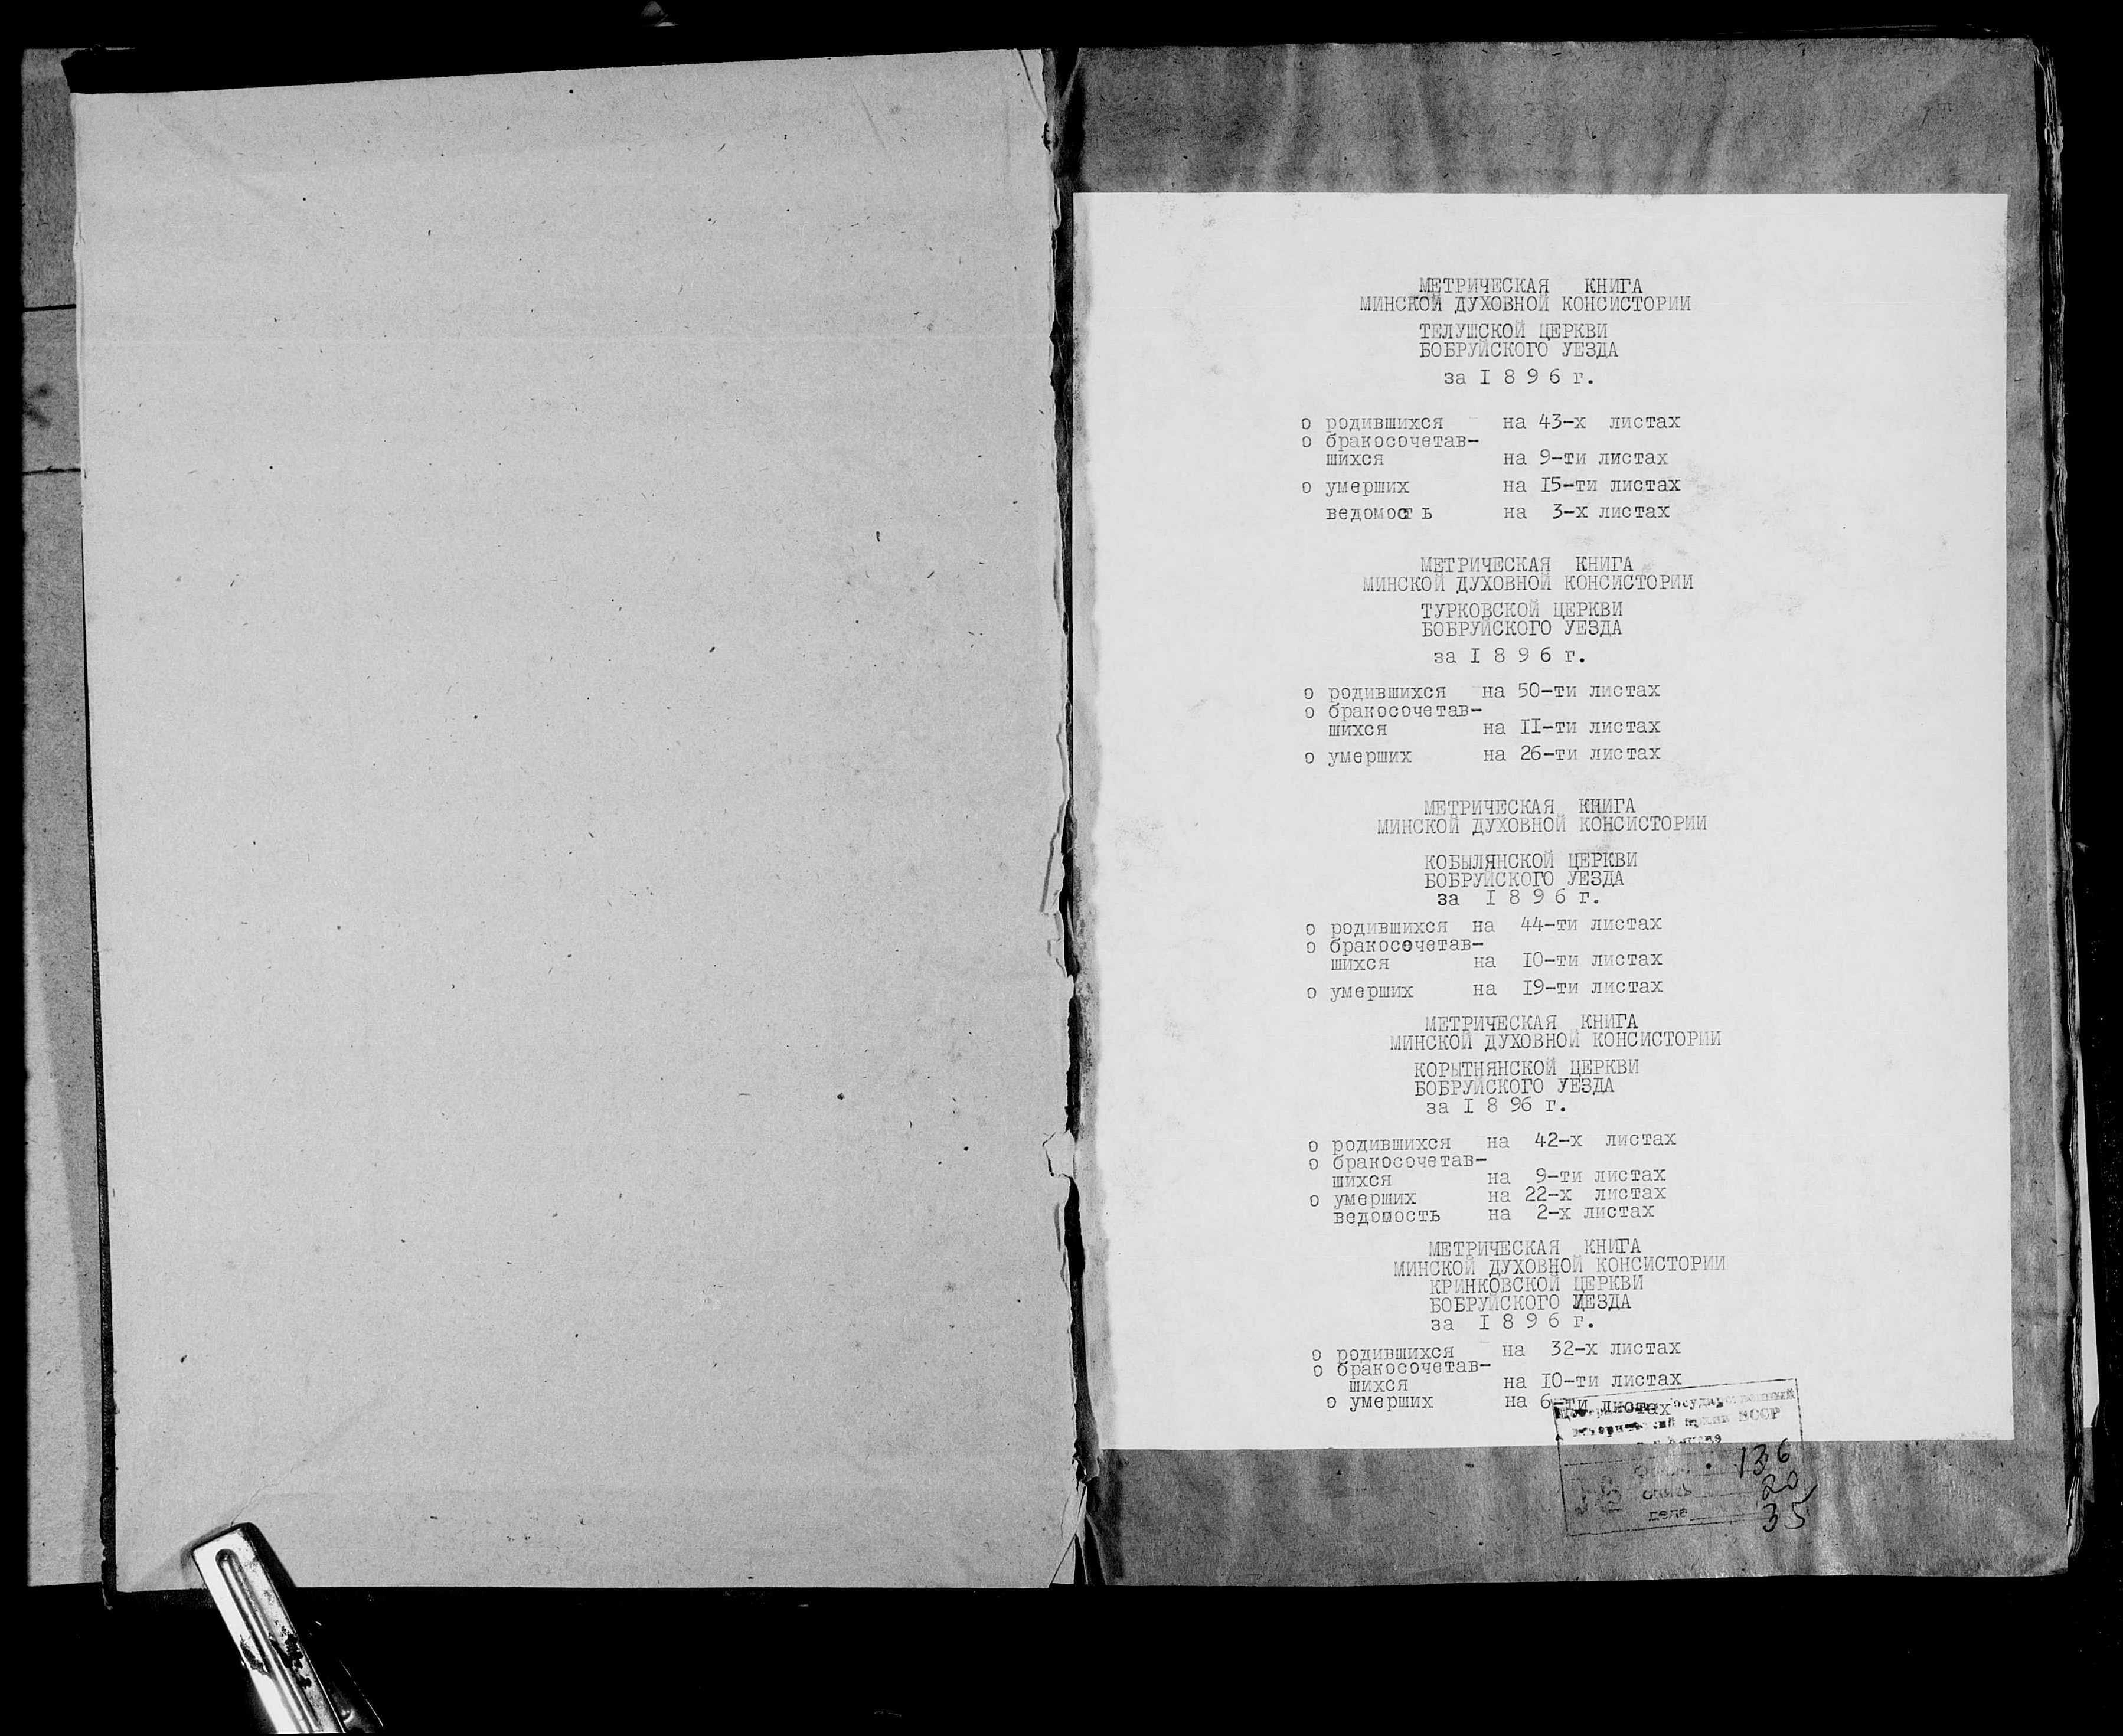 МЕТРИЧЕСКАЯ КНИГА
МИНСКОЙ ДУХОВНОЙ КОНСИСТОРИИ
ТЕЛУШСКОЙ ЦЕРКВИ
БОБРУЙСКОГО УЕЗДА
за I 8 9 6 г.
о родившихся на 43-х листах
о бракосочетав-
шихся на 9-ти листах
о умерших на I5-ти листах
ведомость на 3-х листах
МЕТРИЧЕСКАЯ КНИГА
МИНСКОЙ ДУХОВНОЙ КОНСИСТОРИИ
ТУРКОВСКОЙ ЦЕРКВИ
БОБРУЙСКОГО УЕЗДА
за I 8 9 6 г.
о родившихся на 50-ти листах
о бракосочетав-
шихся на II-ти листах
о умерших на 26-ти листах
МЕТРИЧЕСКАЯ КНИГА
МИНСКОЙ ДУХОВНОЙ КОНСИСТОРИИ
КОБЫЛЯНСКОЙ ЦЕРКВИ
БОБРУЙСКОГО УЕЗДА
за I 8 9 6 г.
о родившихся на 44-ти листах
о бракосочетав-
шихся на I0-ти листах
о умерших на I9-ти листах
МЕТРИЧЕСКАЯ КНИГА
МИНСКОЙ ДУХОВНОЙ КОНСИСТОРИИ
КОРЫТНЯНСКОЙ ЦЕРКВИ
БОБРУЙСКОГО УЕЗДА
за I 8 96 г.
о родившихся на 42-х листах
о бракосочетав-
шихся на 9-ти листах
о умерших на 22-х листах
ведомость на 2-х листах
МЕТРИЧЕСКАЯ КНИГА
МИНСКОЙ ДУХОВНОЙ КОНСИСТОРИИ
КРИНКОВСКОЙ ЦЕРКВИ
БОБРУЙСКОГО УЕЗДА
за I 8 9 6 г.
о родившихся на 32-х листах
о бракосочетав-
шихся на I0-ти листах
о умерших на 6-ти листах
государственный
архив БССР
136
опись 20
дела 35